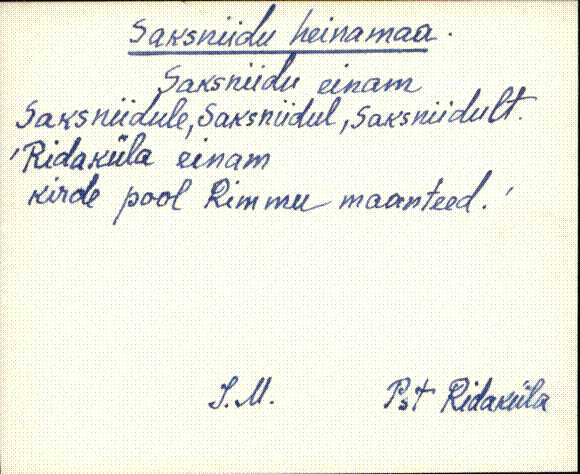 Saksniidu heinamaa.
Saksniidu einam
Saksniidule, Saksniidul, Saksniidult.
'Ridaküla einam
kirde pool Rimmu maanteed.'
J.M. Pst Ridaküla